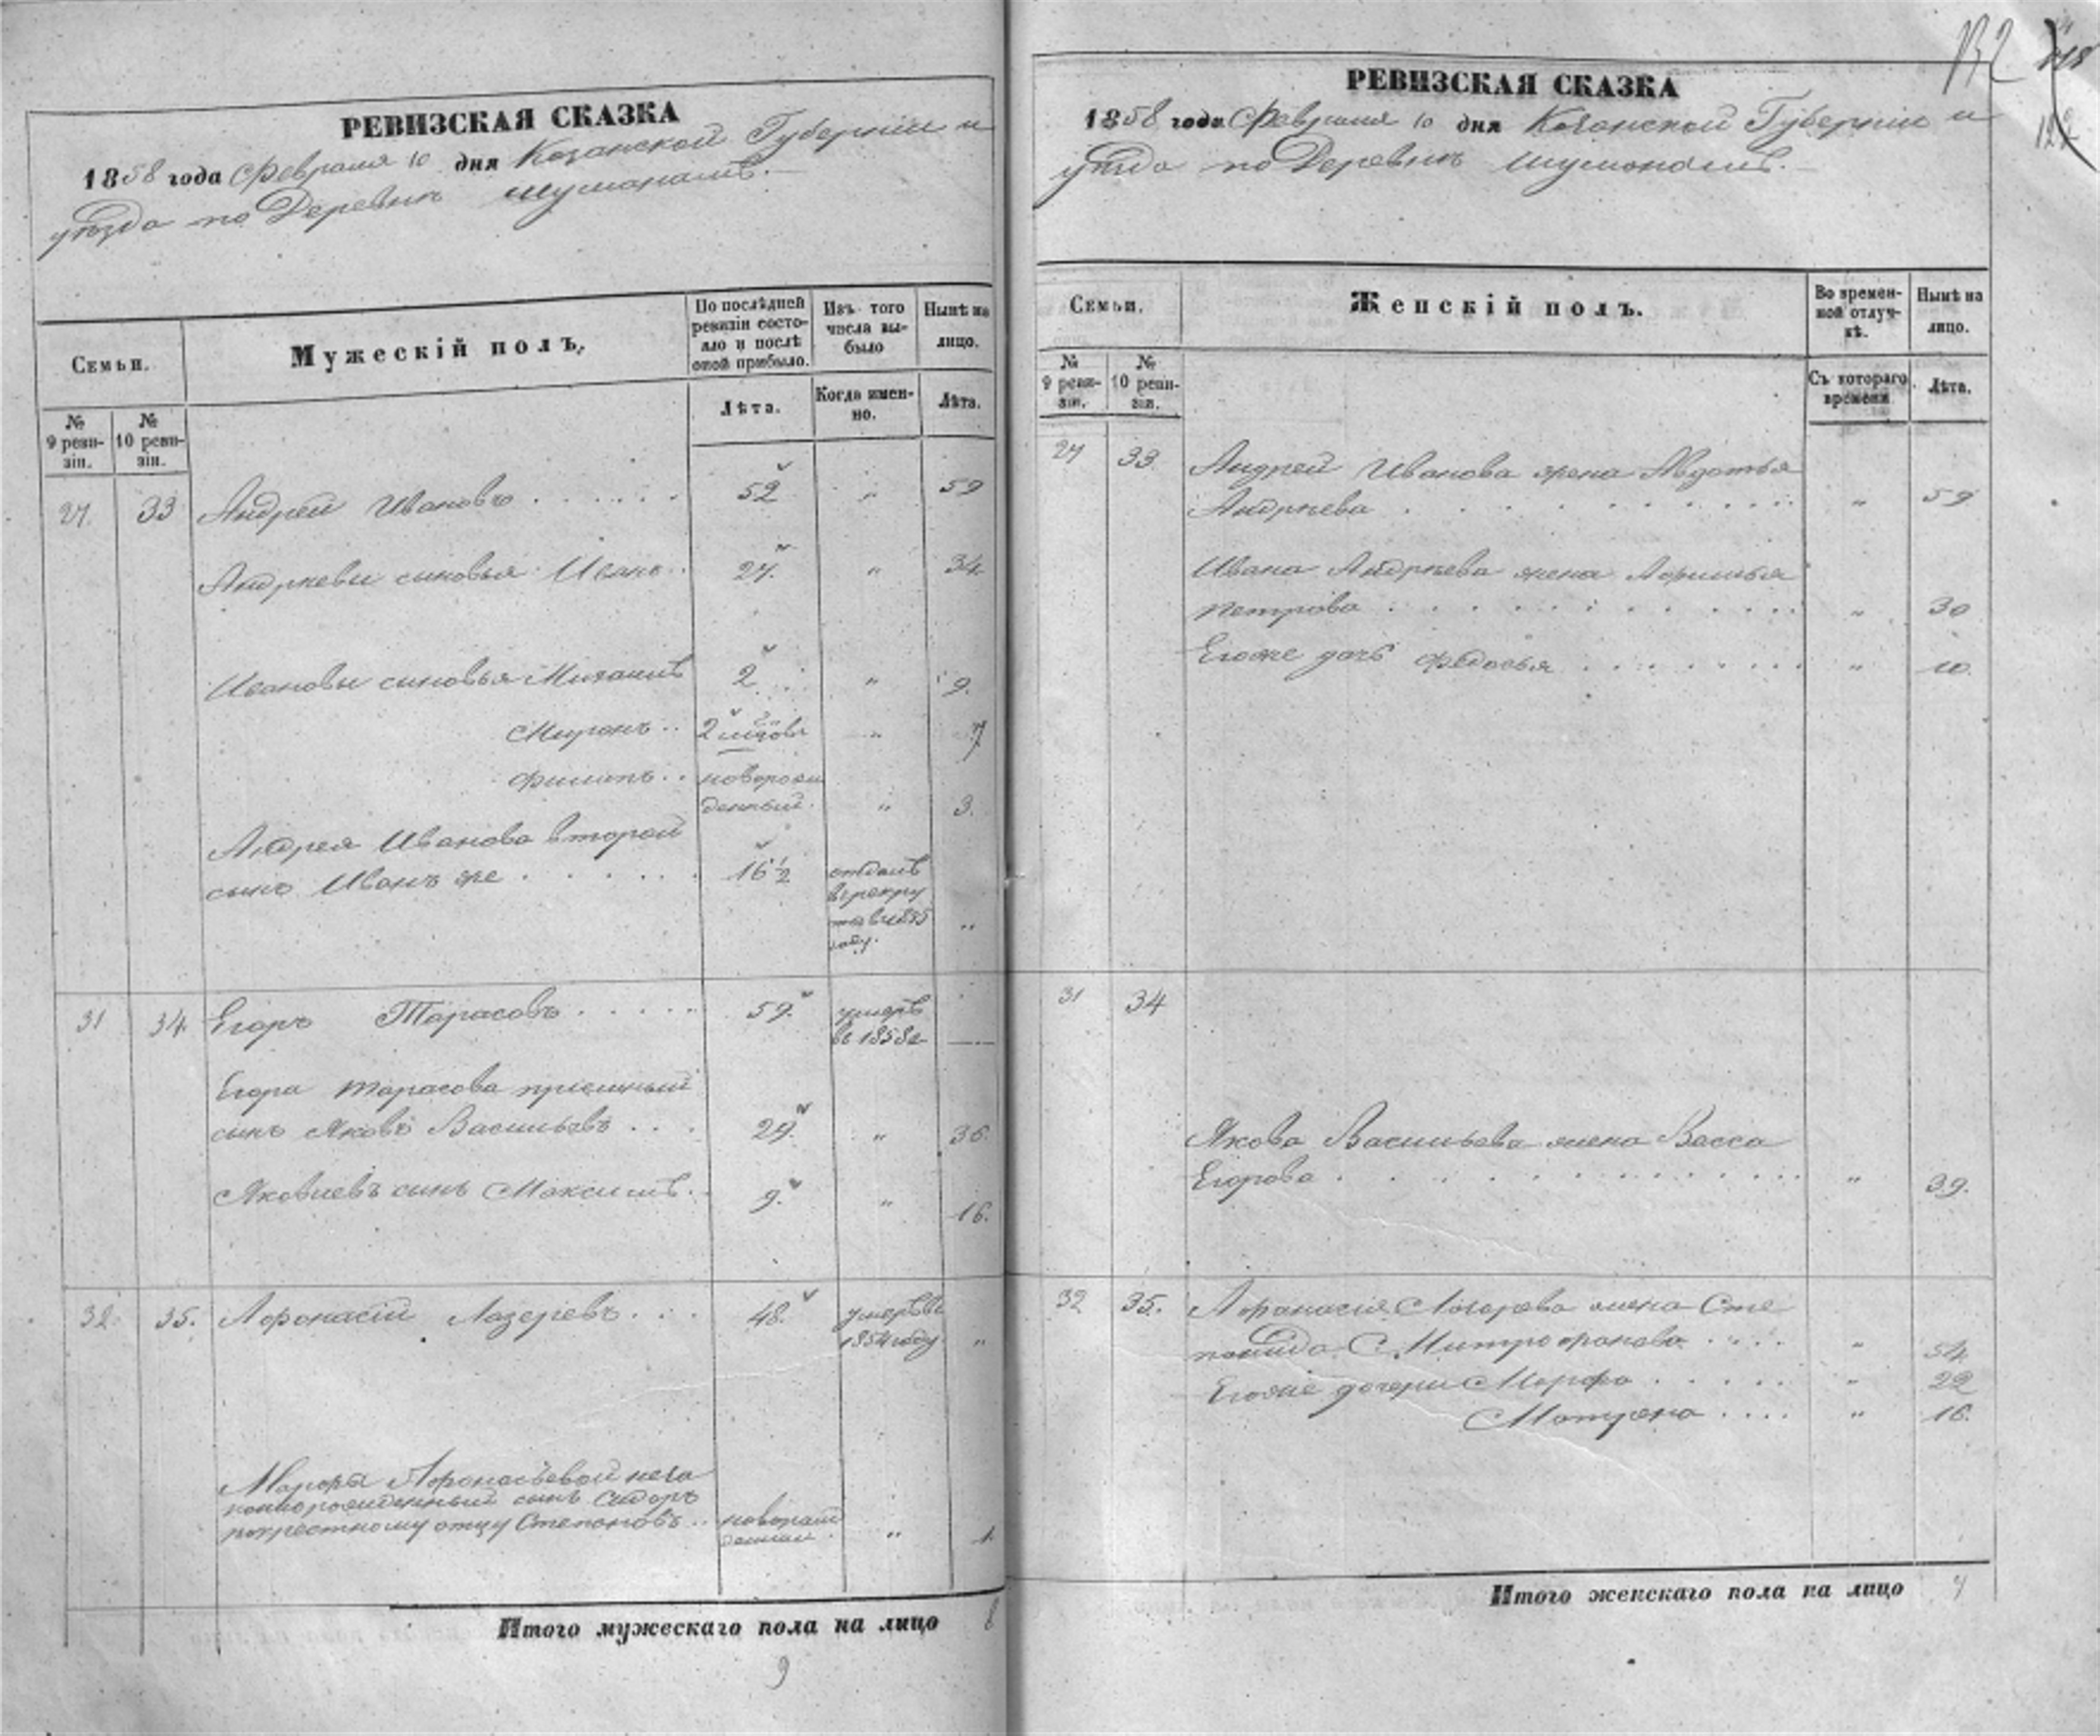 РЕВИЗСКАЯ СКАЗКА
1858 года Февраля 10 дня Казанской Губерніи и
уѣзда по Деревнѣ Шуманамъ.
Семьи.
Мужескій полъ.
По послѣдней ревизіи состояло и послѣ оной прибыло.
Изъ того числа выбыло
Нынѣ на лицо.
№ 9 ревизіи.
№ 10 ревизіи.
Лѣта.
Когда именно.
Лѣта.
27. 33 Андрей Ивановъ . . . . . . 52 „ 59
Андреевы сыновья Иванъ . . 27. „ 34.
Ивановы сыновья Михаилъ 2 „ 9.
Миронъ . . 2 „ 7
Филипъ . . новорож
денный. „ 3.
Андрея Иванова второй
сынъ Иванъ же . . . . . . 16 1/2 отданъ
въ рекру
ты въ 1855
году. „
31 34. Егоръ Тарасовъ . . . . . 59. умеръ
въ 1858 г —
Егора Тарасова приемный
сынъ Яковъ Васильевъ . . . 29. „ 36.
Яковлевъ сынъ Максимъ . . 9. „ 16.
32. 35. Афонасій Лазеревъ . . . 48. умеръ въ
1854 году „
Марфы Афонасьевой неза
коннорожденный сынъ Сидоръ
по крестному отцу Степановъ . . новорож
денный . „ 1.
Итого мужескаго пола на лицо 8
9
РЕВИЗСКАЯ СКАЗКА
1858 года Февраля 10 дня Казанской Губерніи и
уѣзда по Деревнѣ Шуманамъ.
122
Семьи.
Женскій полъ.
Во временной отлучкѣ.
Нынѣ на лицо.
№ 9 ревизіи.
№ 10 ревизіи.
Съ котораго времени
Лѣта.
27 33 Андрей Иванова жена Авдотья
Андреева . . . . . . . . . . „ 59
Ивана Андреева жена Афимья
Петрова . . . . . . . . . . „ 30
Егоже дочь Федосья . . . . . . . . „ 10.
31 34
Якова Васильева жена Васса
Егорова . . . . . . . . . . . „ 39.
32 35. Афанасія Лазарева жена Сте
понида Митрофанова . . . . „ 54
Егоже дочери Марфа . . . . . „ 22
Матрена . . . . „ 16.
Итого женскаго пола на лицо 7